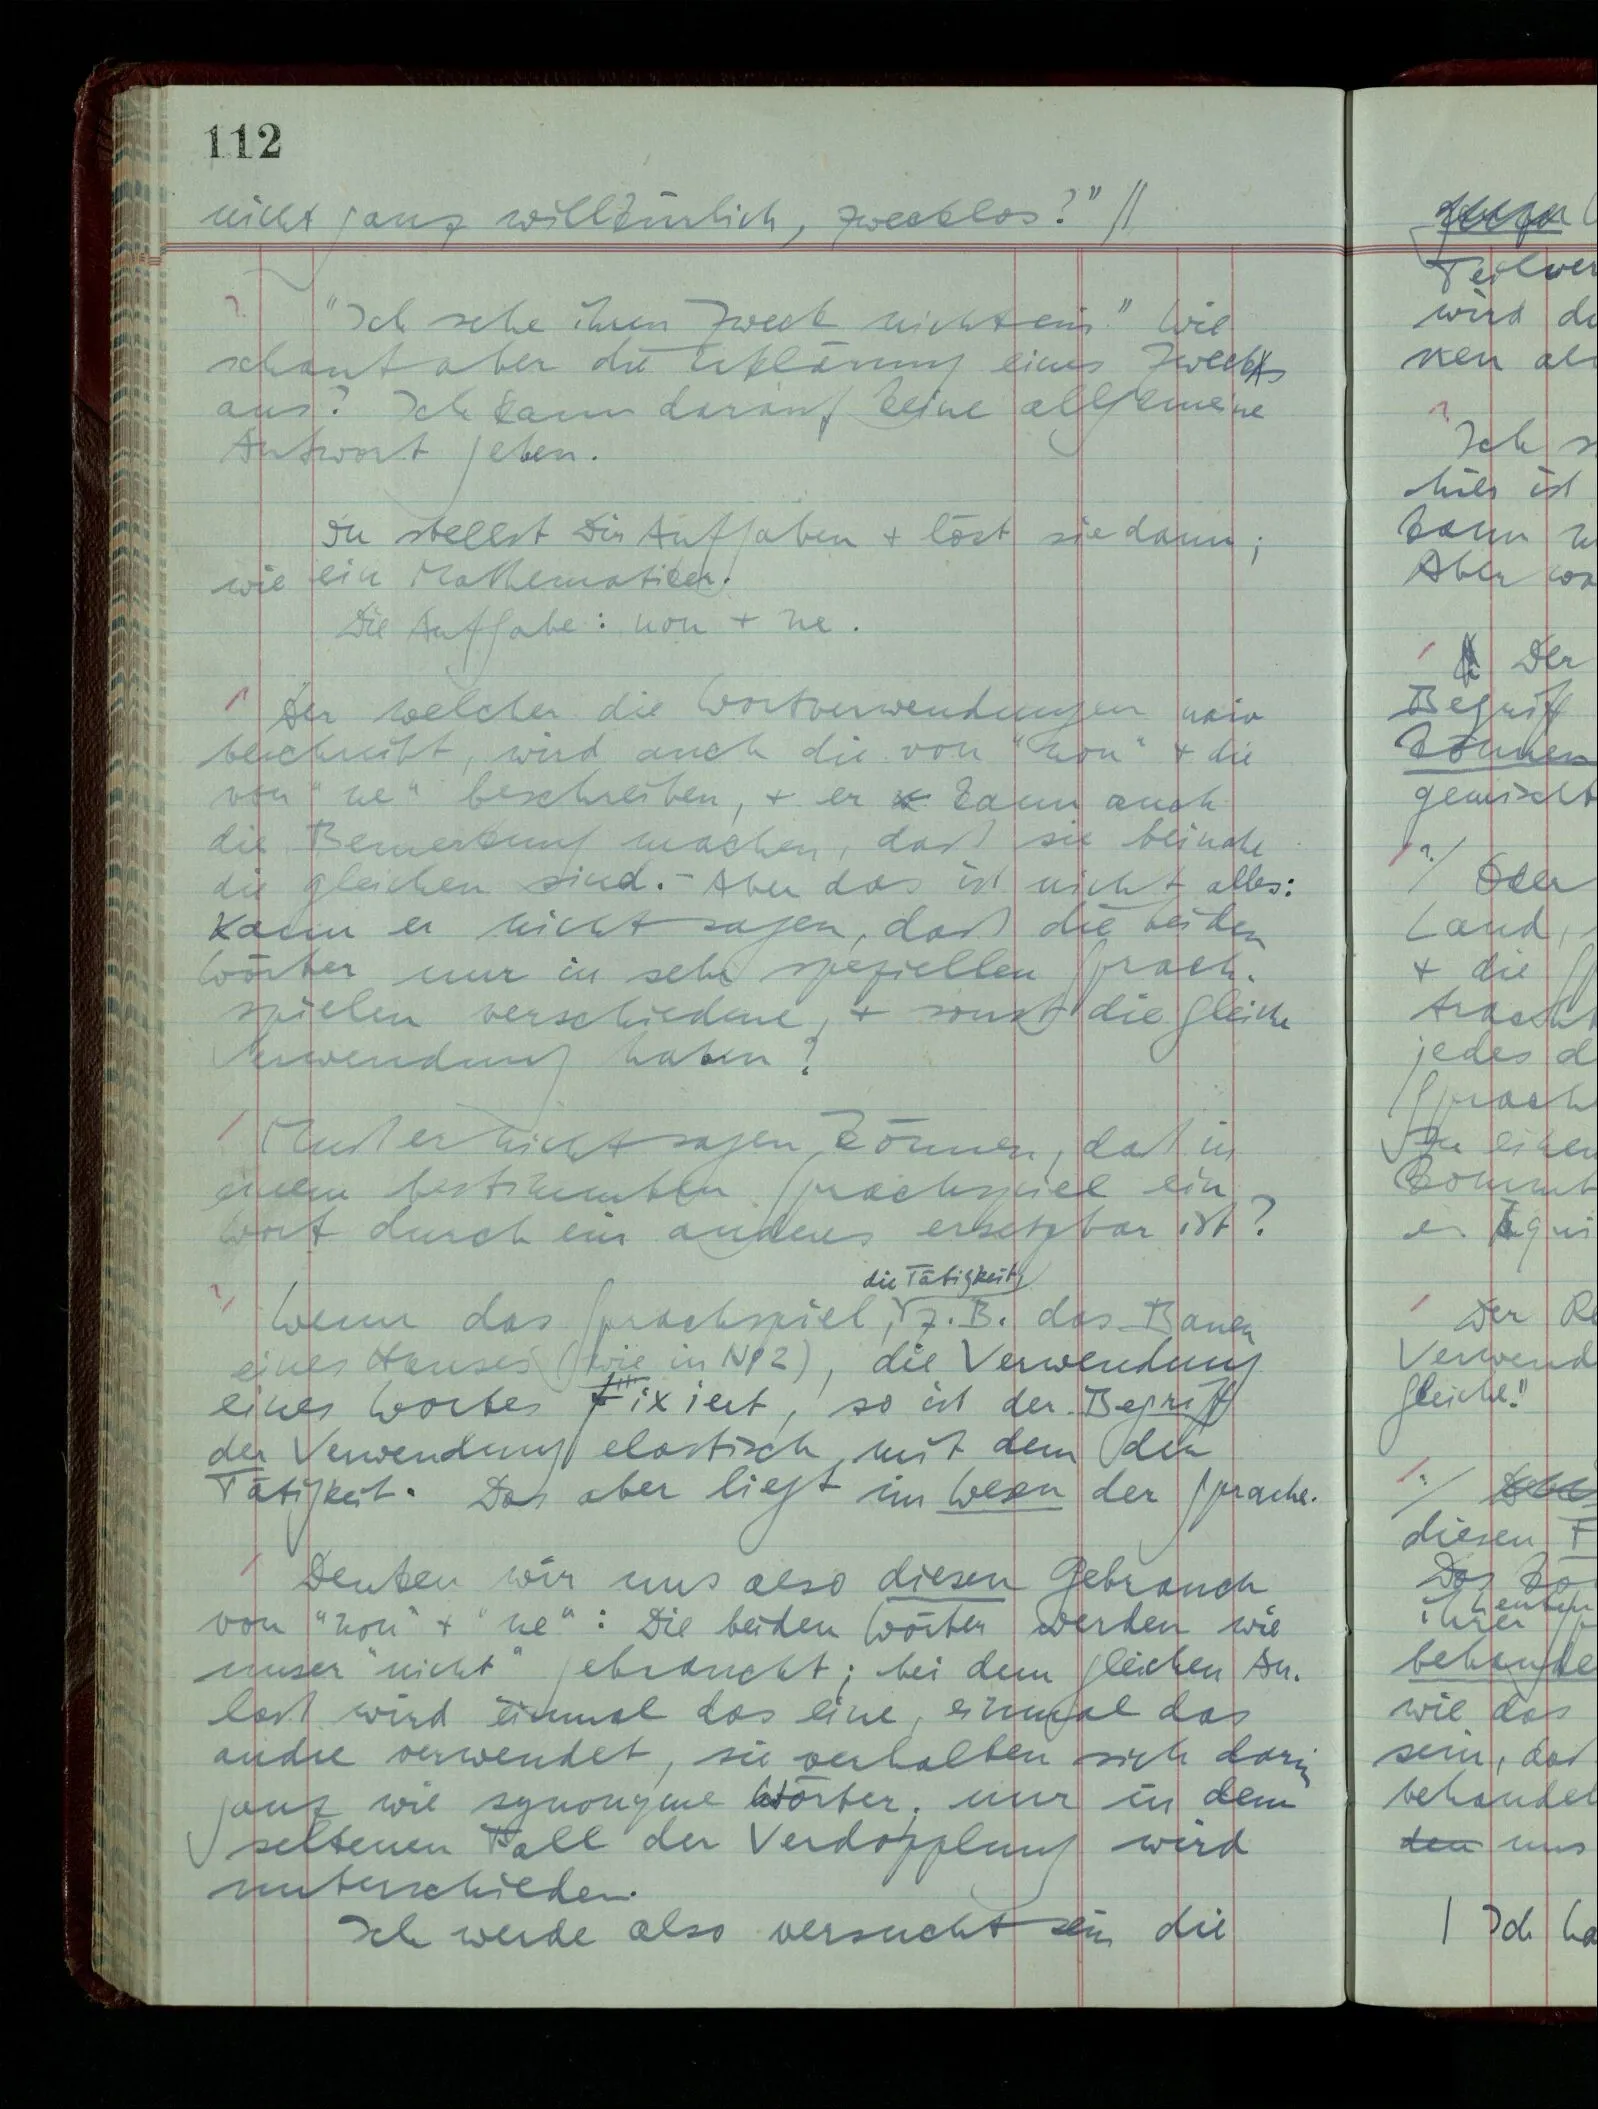 112
nicht ganz willkürlich, zwecklos?" //
? "Ich sehe ihren Zweck nicht ein." Wie
schaut aber die Erklärung eines Zwecks
aus? Ich kann darauf keine allgemeine
Antwort geben.
Du stellst Dir Aufgaben + löst sie dann;
wie ein Mathematiker.
Die Aufgabe: non + ne.
Der welcher die Wortverwendungen naiv
beschreibt, wird auch die von "non" + die
von "ne" beschreiben, + er kann auch
die Bemerkung machen, daß sie beinahe
die gleichen sind. – Aber das ist nicht alles:
Kann er nicht sagen, daß die beiden
Wörter nur in sehr speziellen Sprach-
spielen verschiedene, + sonst die gleiche
Verwendung haben?
/ Muß er nicht sagen können, daß in
einem bestimmten Sprachspiel ein
Wort durch ein anderes ersetzbar ist?
die Tätigkeit,
Wenn das Sprachspiel, z.B. das Bauen
eines Hauses (wie in No 2), die Verwendung
eines Wortes fixiert, so ist der Begriff
der Verwendung elastisch mit dem der
Tätigkeit. Das aber liegt im Wesen der Sprache.
/ Denken wir uns also diesen Gebrauch
von "non" + "ne": Die beiden Wörter werden wie
unser "nicht" gebraucht; bei dem gleichen An-
laß wird einmal das eine, einmal das
andre verwendet, sie verhalten sich darin
ganz wie synonyme Wörter; nur in dem
seltenen Fall der Verdopplung wird
unterschieden.
Ich werde also versucht sein die
Teilver
wird du
ken al
Ich
hier ist
kann
Aber wa
/ Der
Begriff
können
gemischt
Oder
Land,
+ die Sp
jedes d
Sprach
zu einem
kommt
er
/ Der Re
Verwend
gleiche!"
diesen F
Das
ihrer Sp
behande
wie das
sein, daß
behandel
den uns
| Ich ha